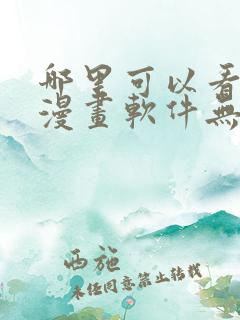 哪里可以看
漫畫軟件無
西施
未任同意禁止转载